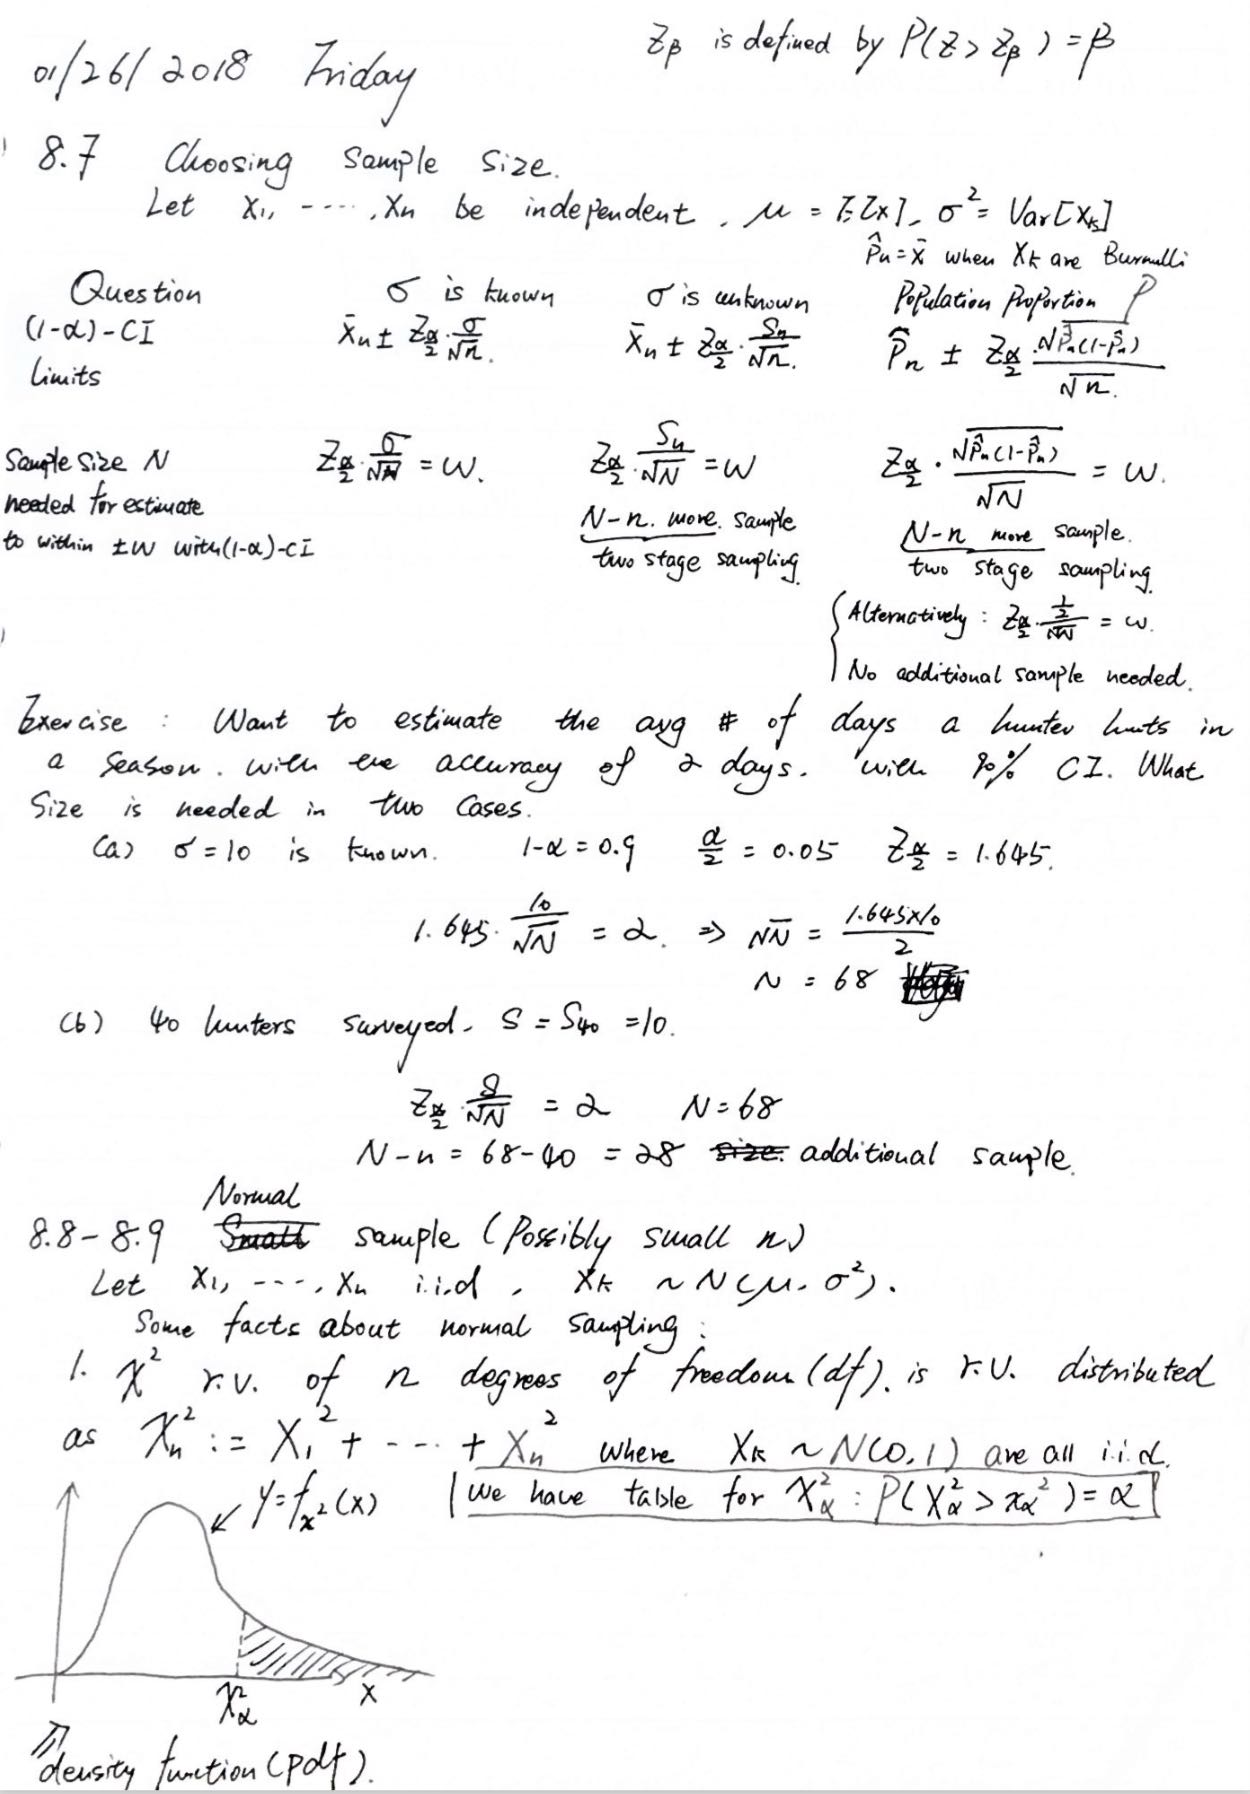 Z_β is defined by P(Z > Z_β) = β
01/26/2018 Friday
8.7 Choosing Sample Size.
Let X₁, ----, Xn be independent, μ = E[X], σ² = Var[X_k]
P̂n = x̄ when X_k are Burnulli
Question σ is known σ is unknown Population Proportion P
(1-α)-CI limits X̄n ± Z_{α/2}·σ/√n. X̄n ± Z_{α/2}·Sn/√n. P̂n ± Z_{α/2} √(P̂n(1-P̂n))/√n.
Sample size N needed for estimate to within ±w with (1-α)-CI Z_{α/2}·σ/√N = w. Z_{α/2}·Sn/√N = w Z_{α/2}·√(P̂n(1-P̂n))/√N = w.
N-n. more. sample N-n more sample.
two stage sampling. two stage sampling.
Alternatively : Z_{α/2}·(1/2)/√N = w.
No additional sample needed.
Exercise : Want to estimate the avg # of days a hunter hunts in
a season. with the accuracy of 2 days. with 90% CI. What
Size is needed in two cases.
(a) σ = 10 is known. 1-α = 0.9 α/2 = 0.05 Z_{α/2} = 1.645.
1.645·10/√N = 2. ⇒ √N = 1.645×10/2
N = 68
(b) 40 hunters surveyed. S = S₄₀ = 10.
Z_{α/2}·S/√N = 2 N = 68
N-n = 68-40 = 28 size. additional sample.
Normal
8.8-8.9 Small sample (Possibly small n)
Let X₁, ---, Xn i.i.d, X_k ~ N(μ, σ²).
Some facts about normal sampling :
1. χ² r.v. of n degrees of freedom (df). is r.v. distributed
as χn² := X₁² + --- + Xn² where X_k ~ N(0,1) are all i.i.d.
y = f_{x²}(x) we have table for χ²_α : P(χ²_α > x_α²) = α
χ²_α x
density function (pdf).